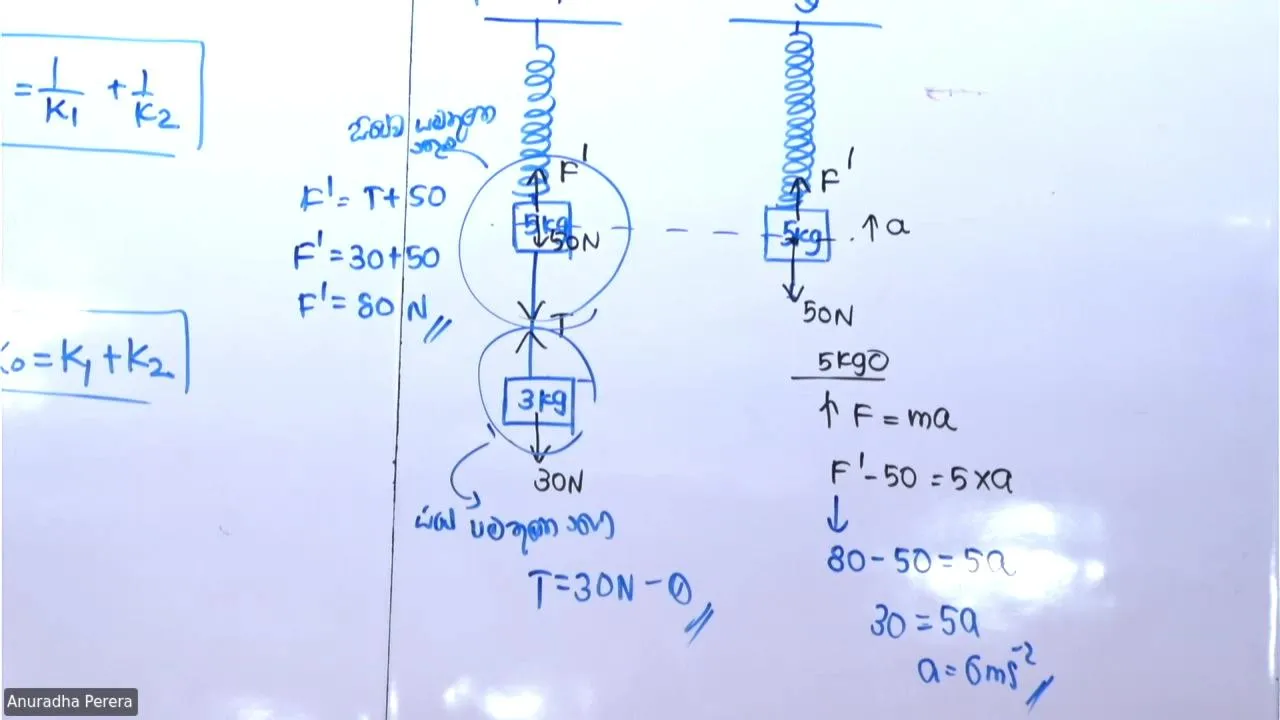 = 1/K₁ + 1/K₂
K₀ = K₁ + K₂
F' = T + 50
F' = 30 + 50
F' = 80 N
F'
5kg
50N
T
3kg
30N
T = 30N - ①
F'
5kg
↑ a
50N
5kg
↑ F = ma
F' - 50 = 5 × a
↓
80 - 50 = 5a
30 = 5a
a = 6ms⁻²
Anuradha Perera